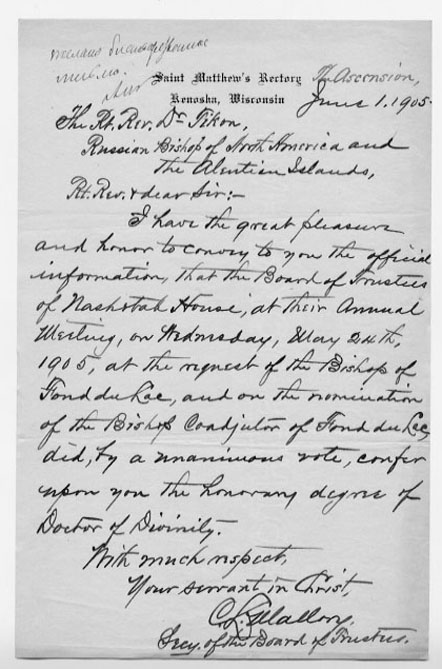 Saint Matthew's Rectory
Kenosha, Wisconsin
The Ascension,
June 1, 1905.
The Rt. Rev. Dr. Tikon,
Russian Bishop of North America and
the Aleutian Islands,
Rt. Rev. & dear Sir:-
I have the great pleasure
and honor to convey to you the official
information, that the Board of Trustees
of Nashotah House, at their Annual
Meeting, on Wednesday, May 24th,
1905, at the request of the Bishop of
Fond du Lac, and on the nomination
of the Bishop Coadjutor of Fond du Lac,
did, by a unanimous vote, confer
upon you the honorary degree of
Doctor of Divinity.
With much respect,
Your servant in Christ,
C. L. Mallory,
Secy. of the Board of Trustees.